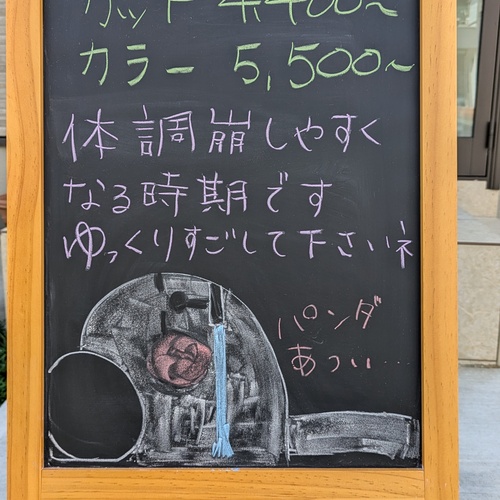 カット 4,400〜
カラー 5,500〜
体調崩しやすく
なる時期です
ゆっくりすごして下さいネ
パンダ
あつい…